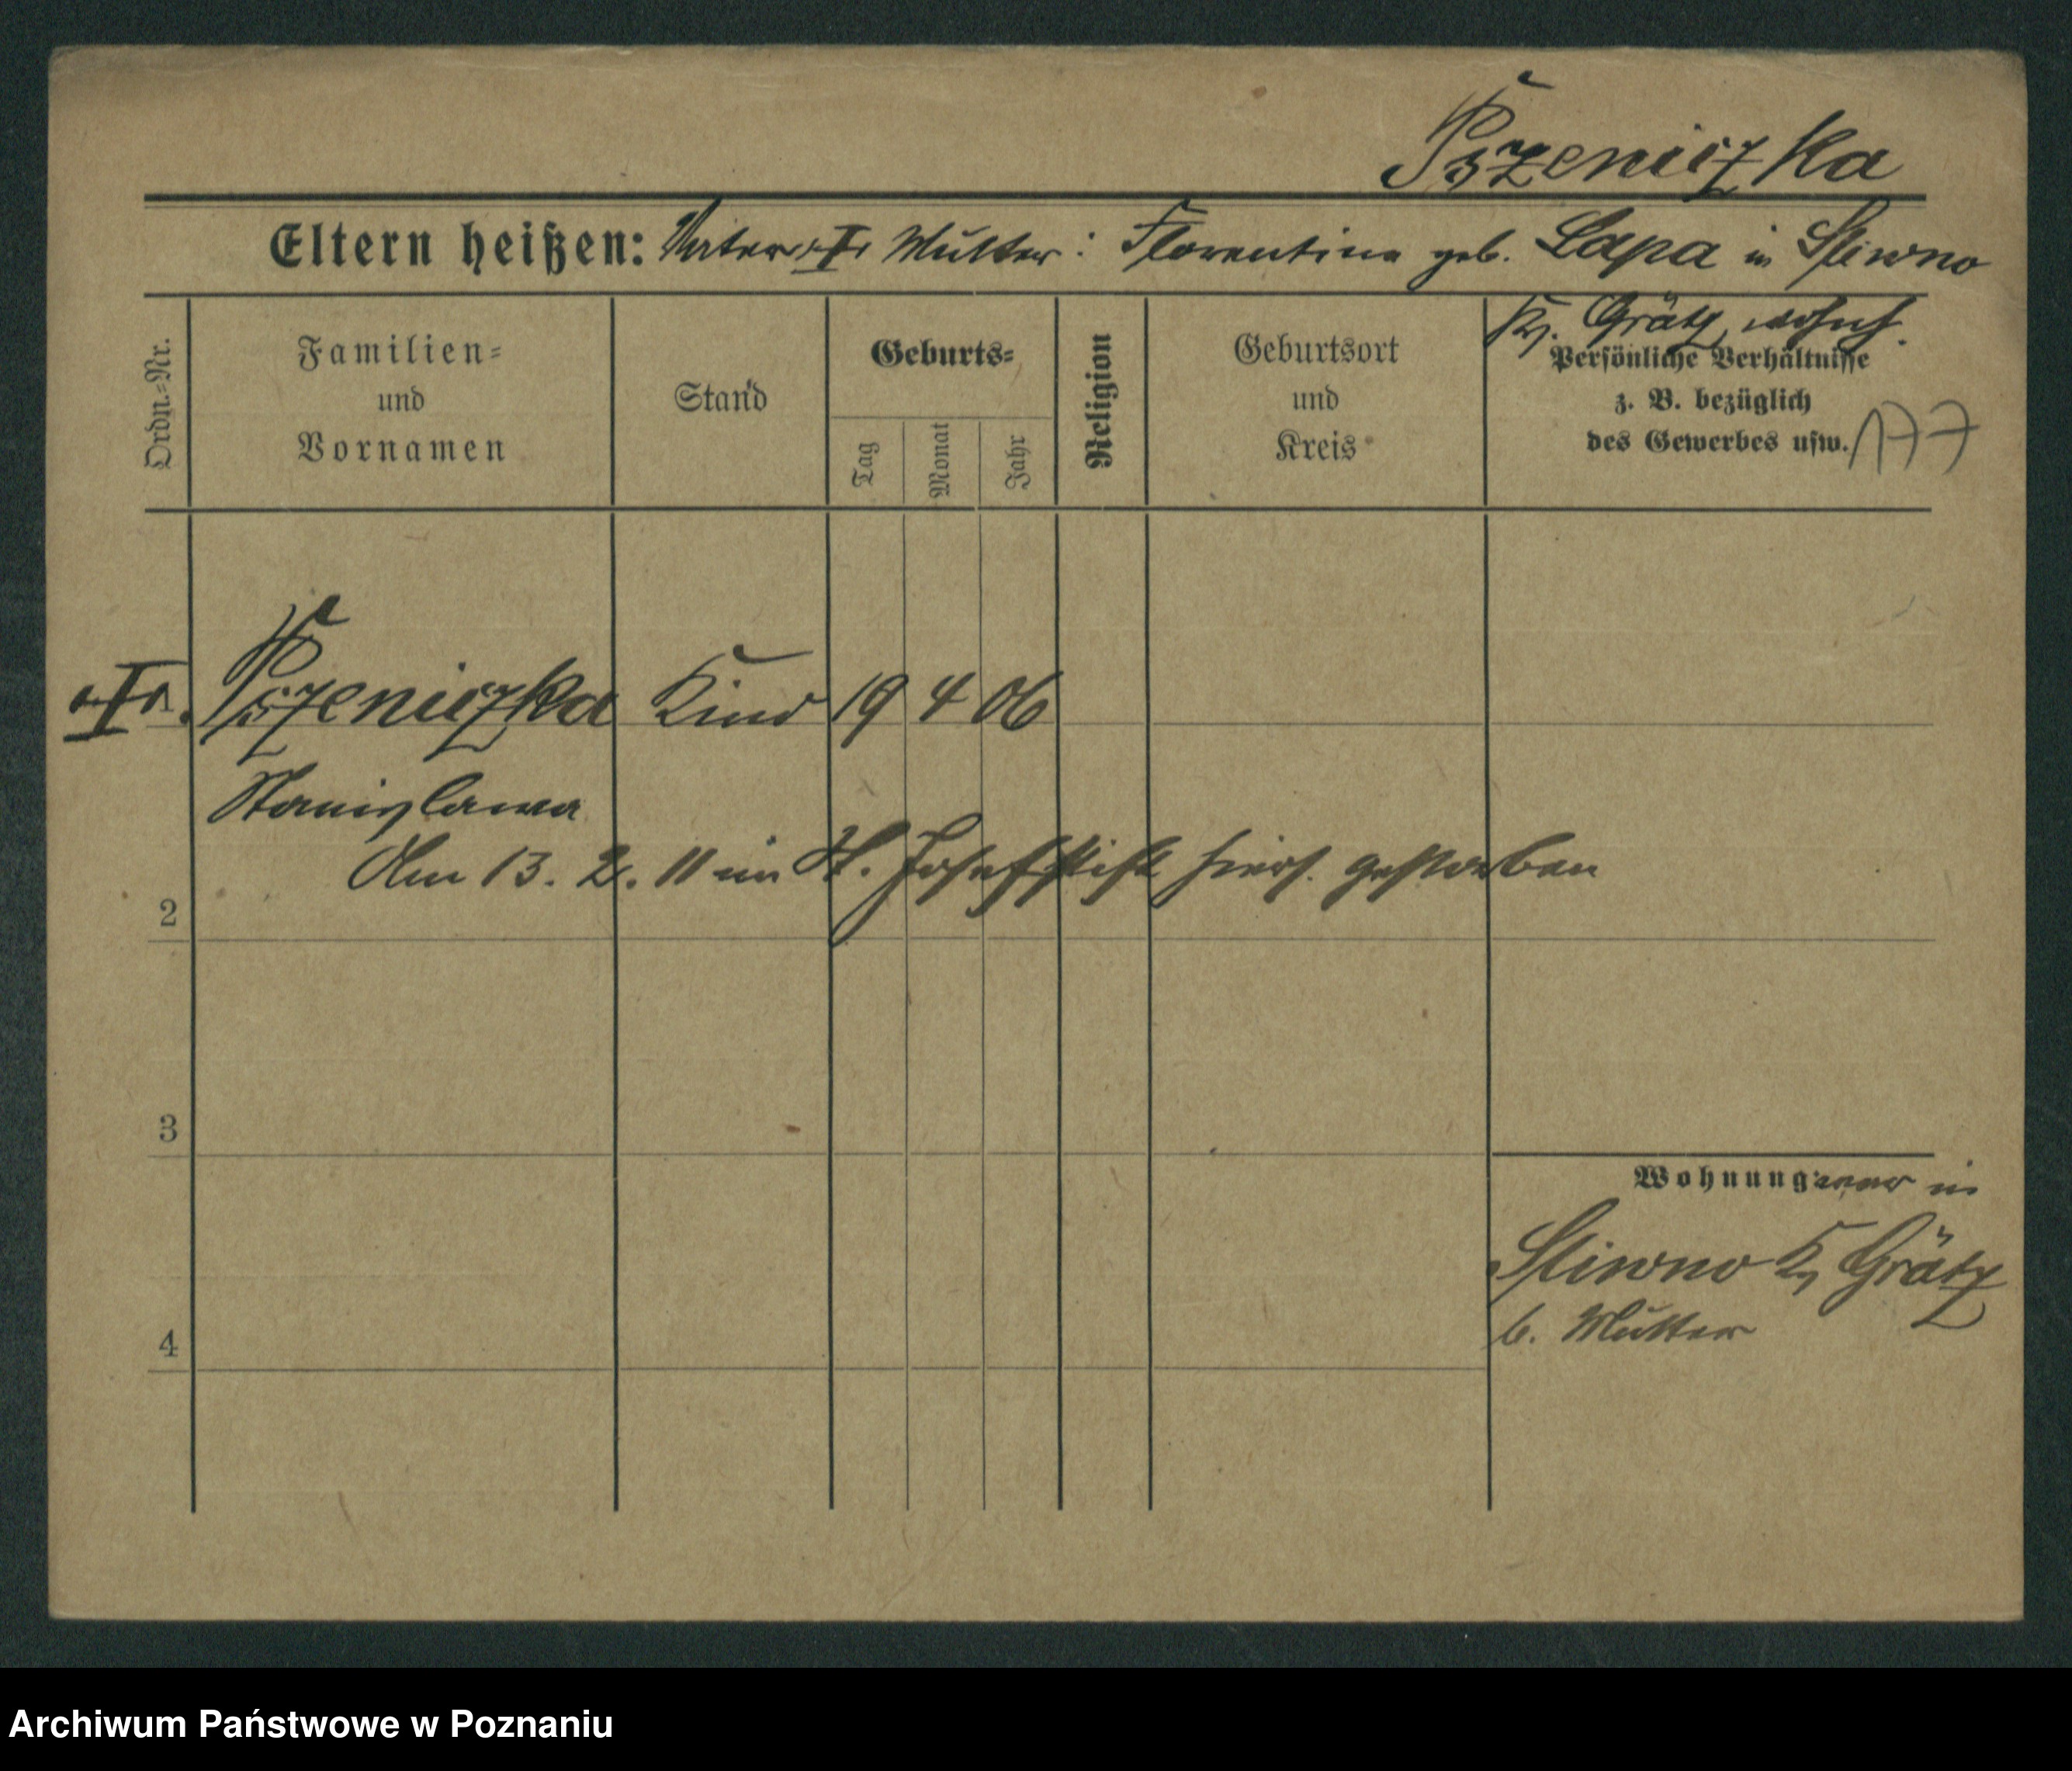 Pszeniczka
Eltern heißen: Vater † Mutter: Florentine geb. Lapa in Sliwno
Kr. Grätz, wohnh.
Ordn.-Nr.
Familien-
und
Vornamen
Stand
Geburts-
Tag
Monat
Jahr
Religion
Geburtsort
und
Kreis
Persönliche Verhältnisse
z. B. bezüglich
des Gewerbes usw.
177
Pszeniczka Kind 19 4 06
Stanislawa
Am 13. 2. 11 im St. Josefstift hiers. gestorben
2
3
Wohnung: war in
Sliwno Kr Grätz
b. Mutter
4
Archiwum Państwowe w Poznaniu